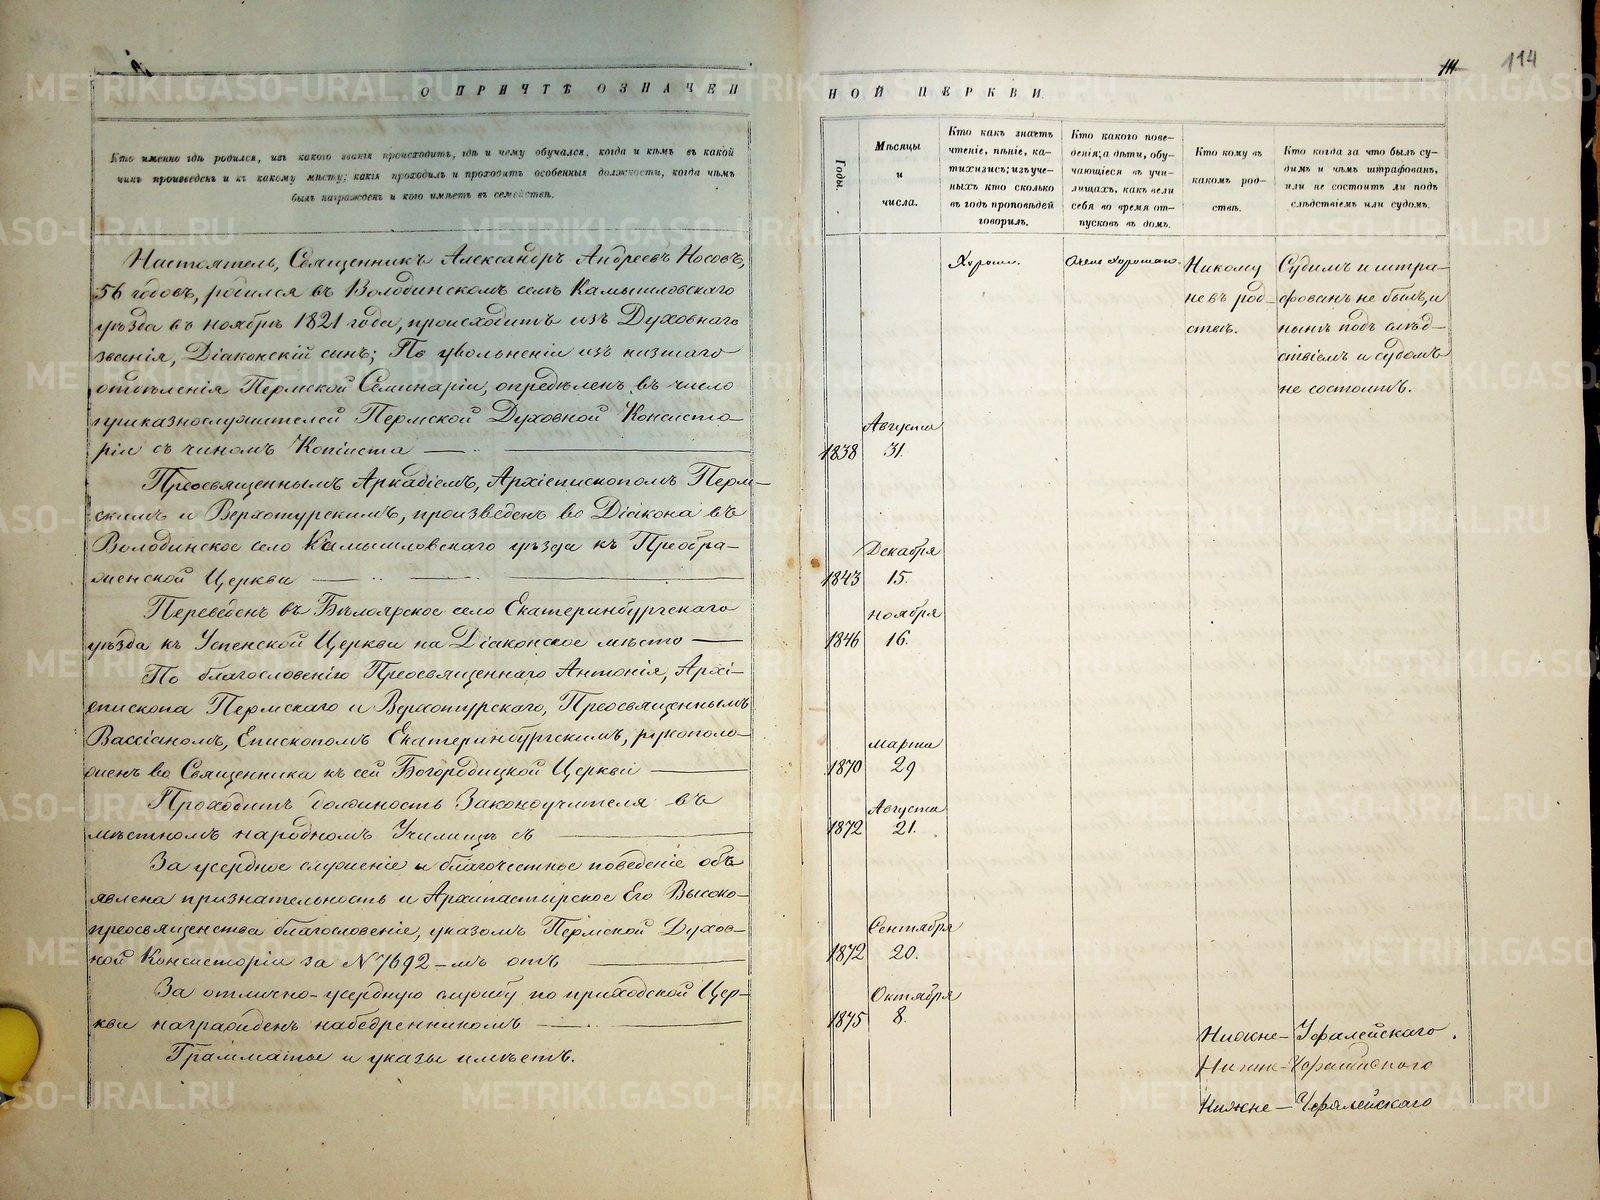 114
О ПРИЧТѢ ОЗНАЧЕН
НОЙ ЦЕРКВИ.
Кто именно гдѣ родился, изъ какого званія происходитъ, гдѣ и чему обучался, когда и кѣмъ въ какой
чинъ произведенъ и къ какому мѣсту; какія проходилъ и проходитъ особенныя должности, когда чѣмъ
былъ награжденъ и кого имѣетъ въ семействѣ.
Годы.
Мѣсяцы
и
числа.
Кто какъ знаетъ
чтеніе, пѣніе, ка-
тихизисъ; изъ уче-
ныхъ кто сколько
въ годъ проповѣдей
говорилъ.
Кто какого пове-
денія; а дѣти, обу-
чающіеся въ учи-
лищахъ, какъ вели
себя во время от-
пусковъ въ домъ.
Кто кому въ
какомъ род-
ствѣ.
Кто когда за что былъ су-
димъ и чѣмъ штрафованъ,
или не состоитъ ли подъ
слѣдствіемъ или судомъ.
Настоятель, Священникъ Александръ Андреевъ Носовъ,
56 годовъ, родился въ Володинскомъ селѣ Камышловскаго
уѣзда въ ноябрѣ 1821 года, происходитъ изъ Духовнаго
званія, Діаконскій сынъ; По увольненіи изъ низшаго
отдѣленія Пермской Семинаріи, опредѣленъ въ число
приказнослужителей Пермской Духовной Консисто-
ріи съ чиномъ Копіиста
Преосвященнымъ Аркадіемъ, Архіепископомъ Перм-
скимъ и Верхотурскимъ, произведенъ во Діакона въ
Володинское село Камышловскаго уѣзда къ Преобра-
женской Церкви
Переведенъ въ Бѣлоярское село Екатеринбургскаго
уѣзда къ Успенской Церкви на Діаконское мѣсто
По благословенію Преосвященнаго Антонія, Архі-
епископа Пермскаго и Верхотурскаго, Преосвященнымъ
Вассіаномъ, Епископомъ Екатеринбургскимъ, рукополо-
женъ во Священника къ сей Богородицкой Церкви
Проходитъ должность Законоучителя въ
мѣстномъ народномъ Училищѣ съ
За усердное служеніе и благочестное поведеніе объ
явлена признательность и Архипастырское Его Высоко-
преосвященства благословеніе, указомъ Пермской Духов-
ной Консисторіи за № 7692-мъ отъ
За отлично-усердную службу по приходской Цер-
кви награжденъ набедренникомъ
Грамматы и указы имѣетъ.
Хорошо.
Очень хорошаго.
Никому
не въ род-
ствѣ.
Судимъ и штра-
фованъ не былъ, и
нынѣ подъ слѣд-
ствіемъ и судомъ
не состоитъ.
Августа
1838 31.
Декабря
1843 15.
Ноября
1846 16.
Марта
1870 29
Августа
1872 21.
Сентября
1872 20.
Октября
1875 8.
Нижне-Уфалейскаго
Нижне-Уфалейскаго
Нижне-Уфалейскаго
METRIKI.GASO-URAL.RU